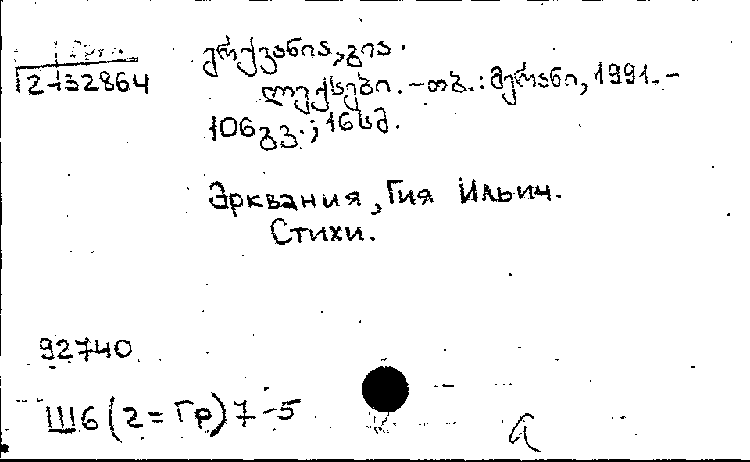 Груз.
Г2-32864
ერქვანია, გია.
ლექსები. – თბ.: მერანი, 1991. –
106 გვ.; 16 სმ.
Эрквания, Гия Ильич.
Стихи.
92740
Ш6(2=Гр)7-5
а